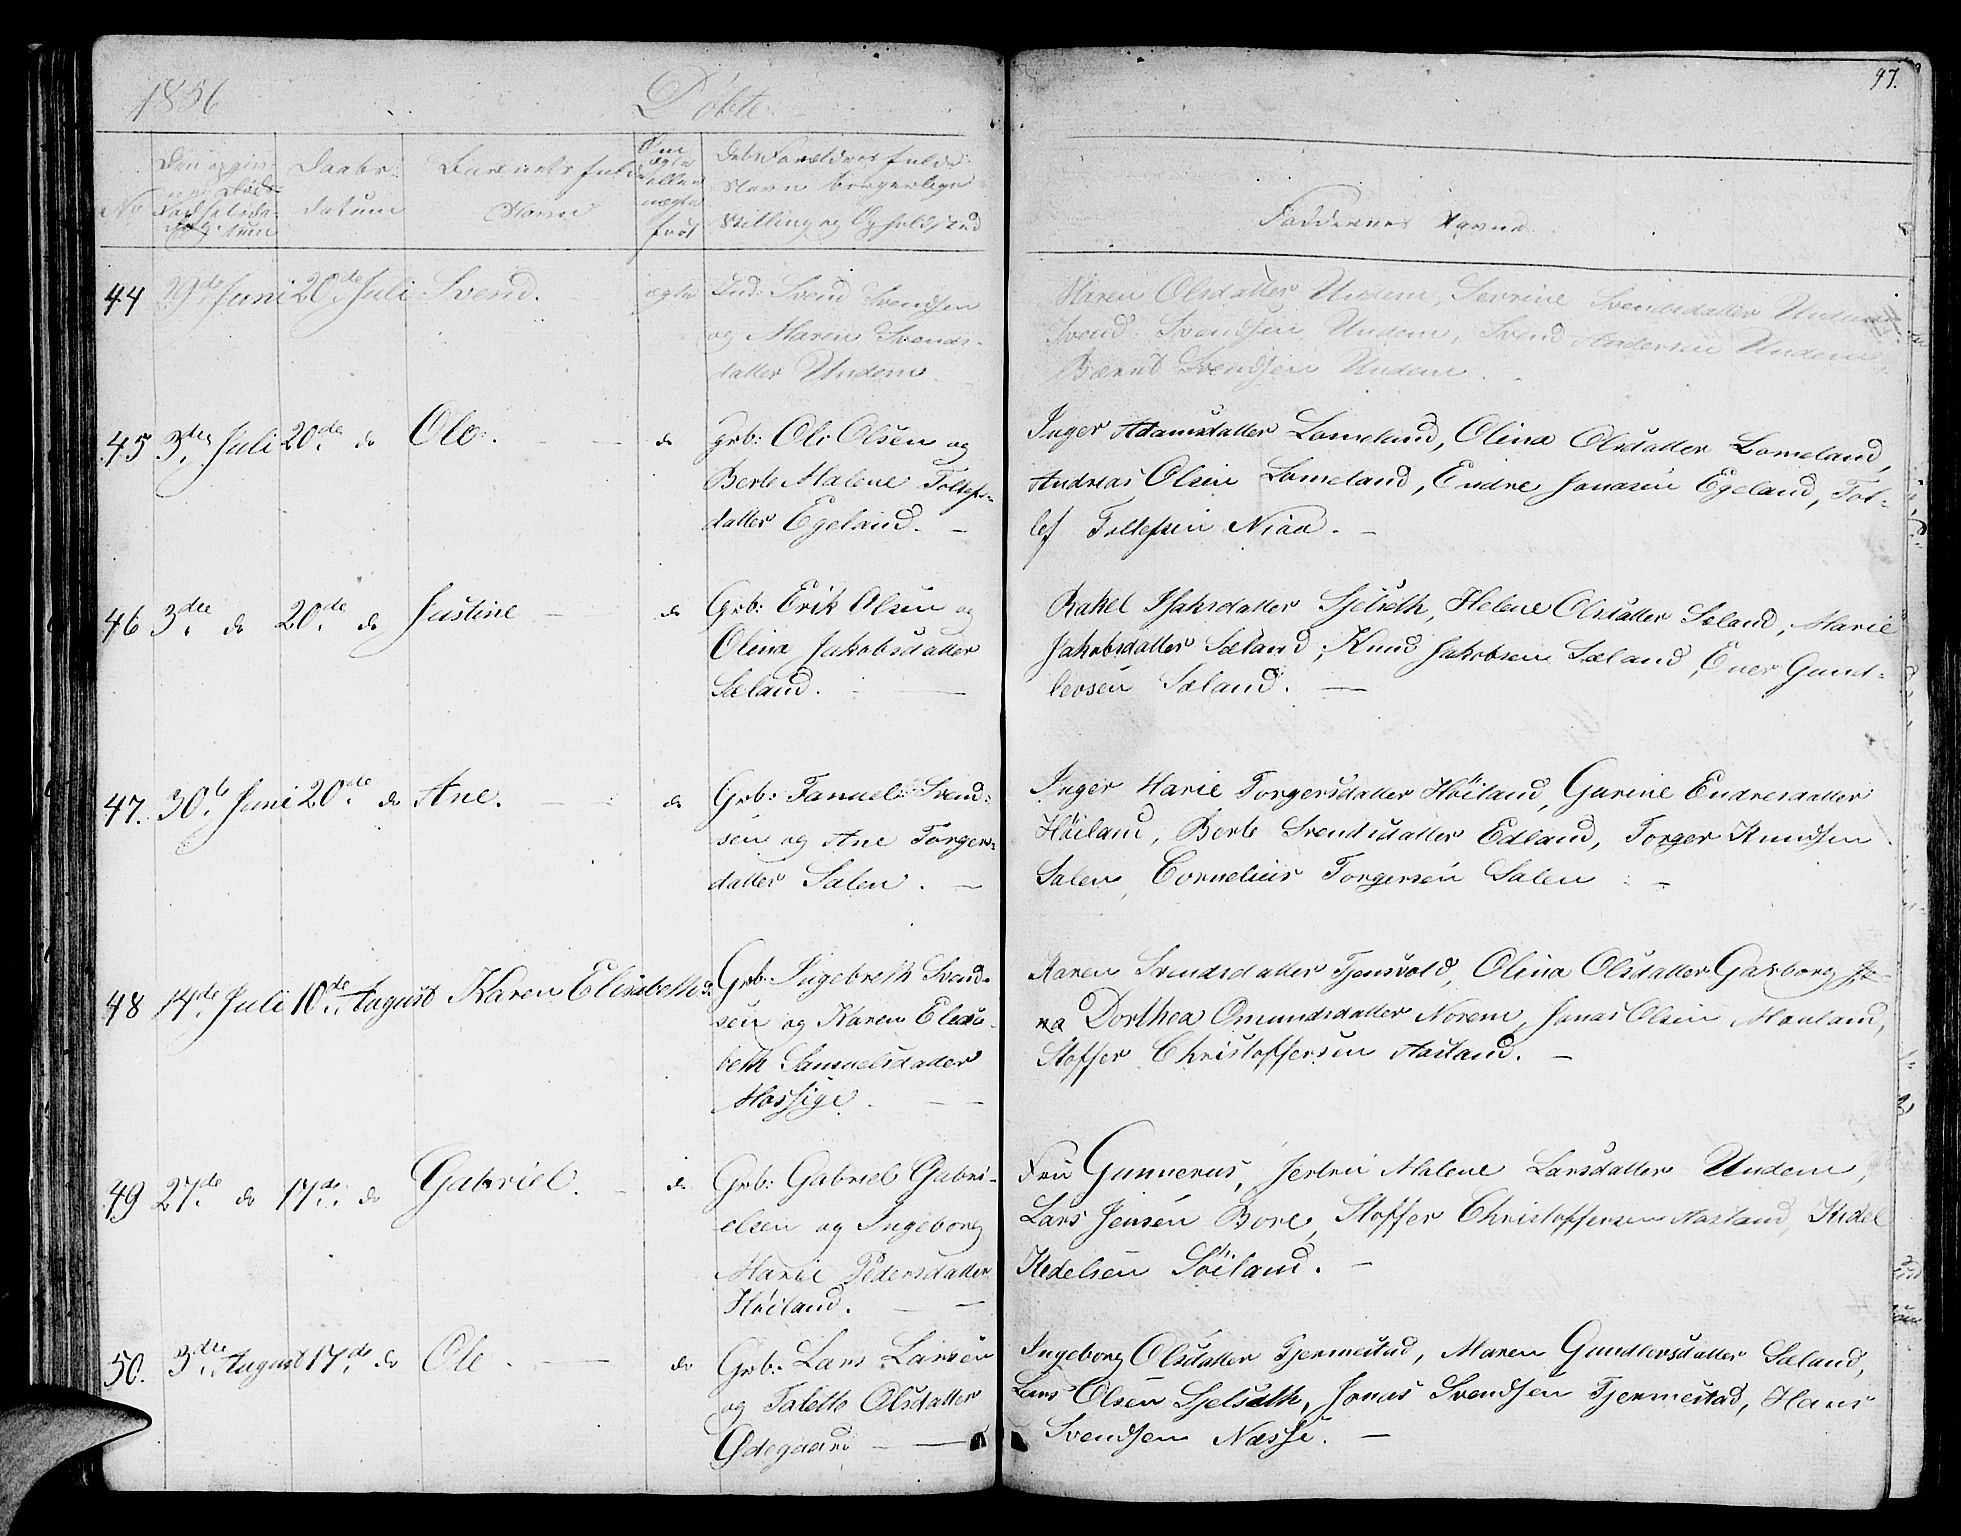 1856 Döbte
47.
No
Daabs-
datum
Barnets fulde
Navn
Om
ægte
eller
uægte
født
Det Forældres fulde
Navn borgerlige
Stilling og Opholdsted
Faddernes Navne
44 29de Juni 20de Juli Svend. ægte Ind: Svend Svendsen
og Maren Svends-
datter Undem
Maren Olsdatter Undem, Serine Svendsdatter Undem
Svend Svendsen Undem, Svend Andersen Undem
Bernt Svendsen Undem.
45 3die Juli 20de do Ole. do grb: Ole Olsen og
Berte Malene Tollefs-
datter Egeland. -
Inger Adamsdatter Lomeland, Olina Olsdatter Lomeland,
Andreas Olsen Lomeland, Endre Jonasen Egeland, Tol-
lef Tollefsen Niaa. -
46 3die do 20de do Justine - do Grb: Erik Olsen og
Olina Jakobsdatter
Sæland. -
Rakel Isaksdatter Sjelseth, Helene Olsdatter Sæland, Marie
Jakobsdatter Sæland, Knud Jakobsen Sæland, Ener Gund-
lersen Sæland. -
47. 30te Juni 20de do Ane. do Grb: Samuel Svend-
sen og Ane Torgers-
datter Salen. -
Inger Marie Torgersdatter Høiland, Gurine Endresdatter
Høiland, Berte Svendsdatter Edland, Torger Knudsen
Salen, Cornelius Torgersen Salen -
48 14de Juli 10de August Karen Elisabeth do Grb: Ingebreth Svend-
sen og Karen Elisa-
beth Samuelsdatter
Mossige. -
Karen Svendsdatter Tjensvold, Olina Olsdatter Garborg, Jo-
na Dorthea Omundsdatter Norem, Jonas Olsen Mauland,
Stoffer Christoffersen Aasland. -
49 27de do 17de do Gabriel. - do Grb: Gabriel Gabri-
elsen og Ingeborg
Marie Pedersdatter
Høiland. -
Fru Gunnerus, Malene Larsdatter Undem,
Lars Jensen Bore, Stoffer Christoffersen Aasland, Kidel
Kedelsen Söiland. -
50. 3die August 17de do Ole. - do Grb: Lars Larsen
og Talette Olsdatter
Ødegaard -
Ingeborg Olsdatter Tjermestad, Maren Gundlersdatter Sæland,
Lars Olsen Sjelseth, Jonas Svendsen Tjermestad, Hans
Svendsen Næsse. -